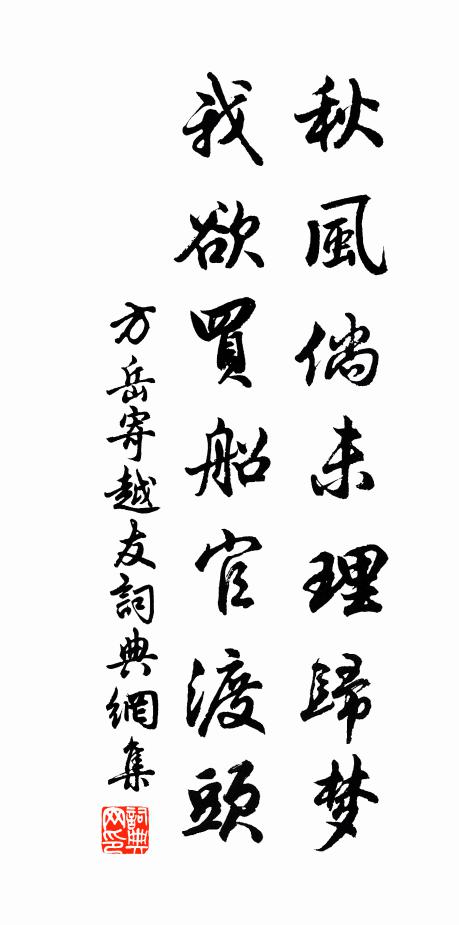 秋風倘未理歸梦
我欲買船官渡頭
方岳寄越友詞典網集
詞典网印